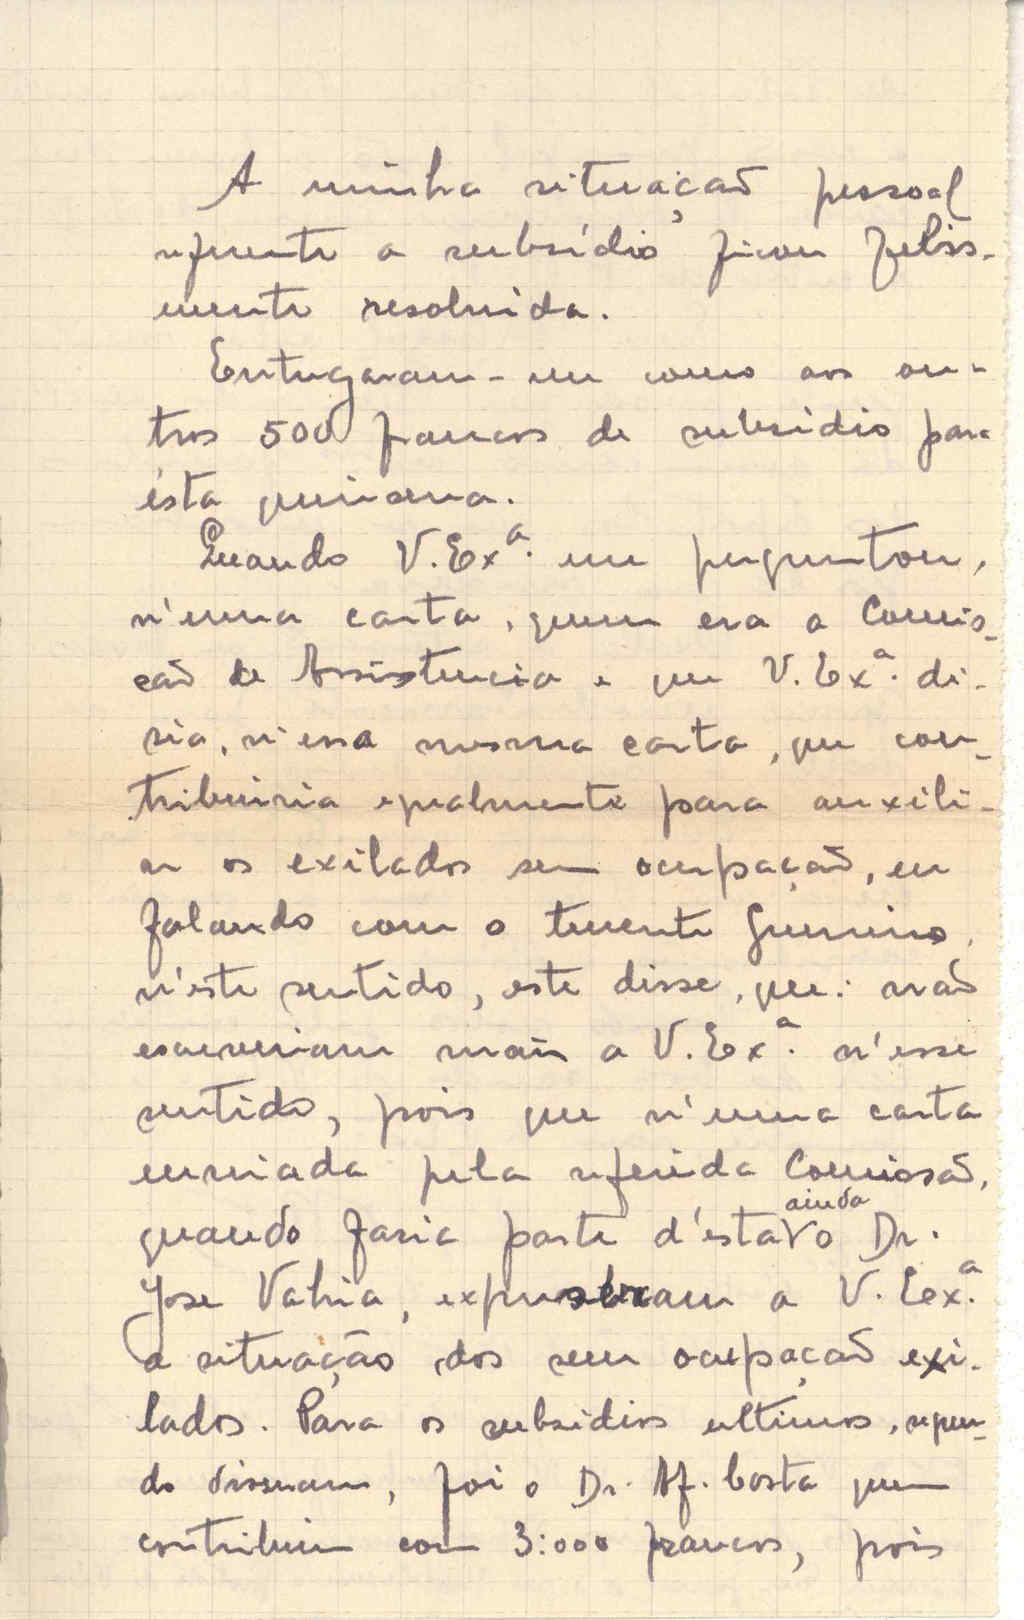 A minha situação pessoal
referente a subsídio ficou felis-
mente resolvida.
Entregaram-me como aos ou-
tros 500 francos de subsidio para
ésta quinsena.
Quando V. Exª. me perguntou,
n'uma carta, quem era a Comis-
são de Assistencia e que V. Exª. di-
sia, n'essa mesma carta, que con-
tribuiria egualmente para auxili-
ar os exilados sem ocupação, eu
falando com o tenente Gumeiro,
n'este sentido, este disse, que: não
escreveriam mais a V. Exª. n'esse
sentido, pois que n'uma carta
enviada pela referida Comissão,
quando fasia parte d'ésta ainda o Dr.
Jose Vahia, expuseram a V. Eex.ª
a situação dos sem ocupação exi-
lados. Para os subsidios ultimos, segun-
do disseram, foi o Dr. Af. Costa quem
contribuiu com 3:000 francos, pois